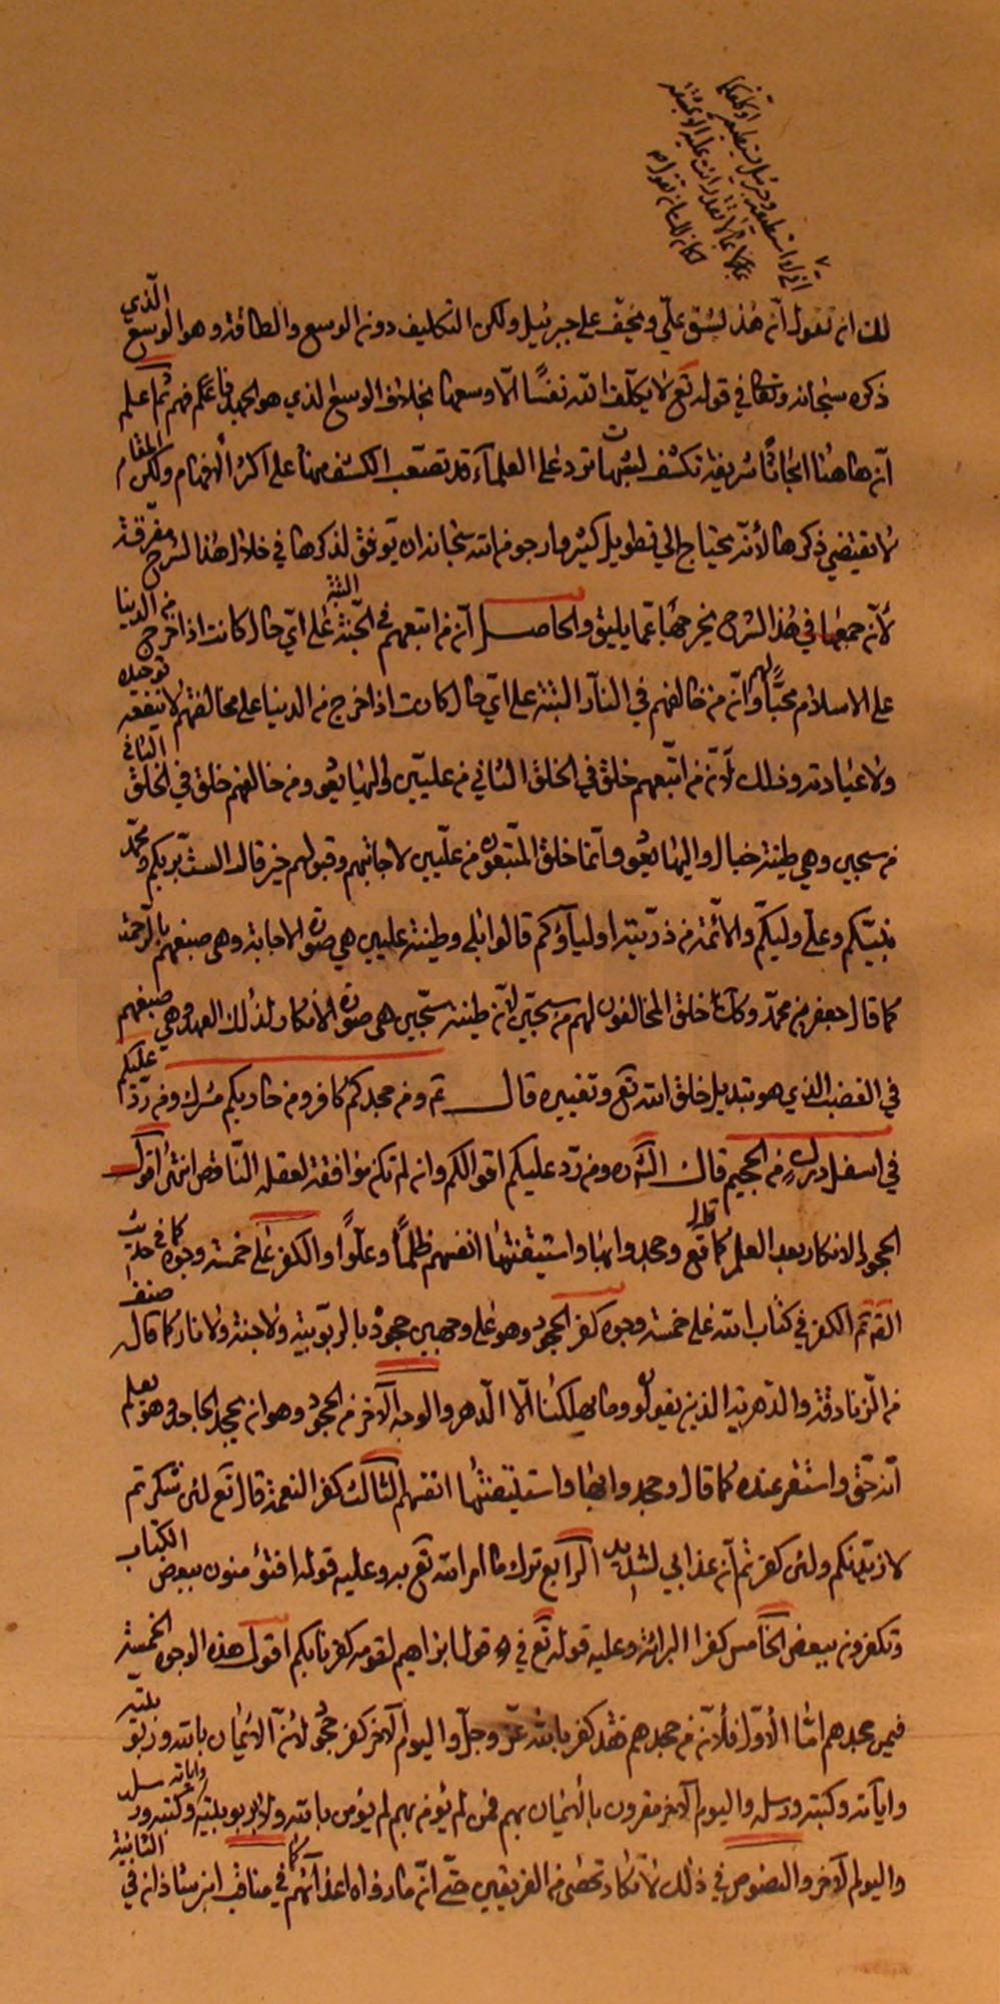 لك ان تقول انّ هذا يشق علىّ ويخفّ على جبرئيل ولكن التكليف دون الوسع والطاقة وهو الوسع الّذي
ذكره سبحانه وتعا في قوله تع لا يكلّف الله نفسًا الّا وسعها بخلاف الوسع الذي هو الجهد فافهم ثم اعلم
انّ هاهنا ابحاثًا شريفة تكشف لشبهات ترد على العلمآء قد تصعّب الكشف عنها على اكثر الافهام ولكن المقام
لا يقتضي ذكرها لأنّه يحتاج الى تطويل كثير وارجو من الله سبحانه ان يوفق لذكرها في خلال هذا الشرح مفرّقة
لأنّ جمعها في هذا الشرح يخرجها عمّا يليق والحاصل انّ من اتبعهم في الجنّة البتّة على ايّ حال كانت اذا خرج من الدنيا
على الاسلام محبًّا لهم وانّ من خالفهم في النّار البتّة على ايّ حال كانت اذا خرج من الدنيا على مخالفتهم لا ينفعه توحيده
ولا عبادته وذلك لأنّ من اتّبعهم خلق في الخلق الثاني من عليّين واليها يعود ومن خالفهم خلق في الخلق الثاني
من سجين وهي طينة خبال واليها يعود وانّما خلق المتّبعون من علّيين لاجابتهم وقبولهم حين قال الست بربكم ومحمّد
نبيّكم وعلي وليكم والائمّة من ذريته اولياؤكم قالوا بلى وطينة عليين هي صورة الاجابة وهي صبغهم بالرّحمة
كما قال جعفر بن محمّد وكذا خلق المخالفون لهم من سجّين لأنّ طينة سجّين هي صورة الأنكار لذلك العهد وهي صبغهم
في الغضب الذي هو تبديل خلق الله تع وتغييره قال ومن جحدكم كافر ومن حاربكم مشرك ومن ردّ عليكم
في اسفل درك من الجحيم قال الش ره ومن ردّ عليكم اقوالكم وان لم تكن موافقة لعقله النّاقص انتهى اقول
الجحود الانكار بعد العلم كما قال تع وجحدوا بها واستيقنتها انفسهم ظلمًا وعلوًا والكفر على خمسة وجوه كما في حديث
الكفر في كتاب الله على خمسة وجوه كفر الجحود وهو على وجهين جحود بالربوبية ولا جنة ولا نار كما قال صنف
من الزنادقة والدّهرية الذين يقولون وما يهلكنا الّا الدّهر والوجه الآخر من الجحود وهو ان يجحد الجاحد وهو يعلم
انّه حقّ واستقر عنده كما قال وجحدوا بها واستيقنتها انفسهم الثالث كفر النعمة قال تع لئن شكرتم
لازيدنّكم ولئن كفرتم انّ عذابي لشديد الرابع ترك ما امر الله تع به وعليه قوله افتؤمنون ببعض الكتاب
وتكفرون ببعض الخامس كفر البرائة وعليه قوله تع في قول ابراهيم لقومه كفرنا بكم اقول هذه الوجوه الخمسة
فيمن جحدهم امّا الأوّل فلأنّ من جحدهم فقد كفر بالله عزّ وجلّ واليوم الآخر كفر جحود لأنّ الايمان بالله وربوبيته
واياته وكتبه ورسله واليوم الآخر مقرون بالايمان بهم فمن لم يؤمن بهم لم يؤمن بالله ولا بربوبيته واياته وكتبه ورسله
واليوم الآخر والنصوص في ذلك لا تكاد تحصى من الفريقين حتّى انّ ما رواه اعدائهم كما في مناقب ابن شاذان في الثانية